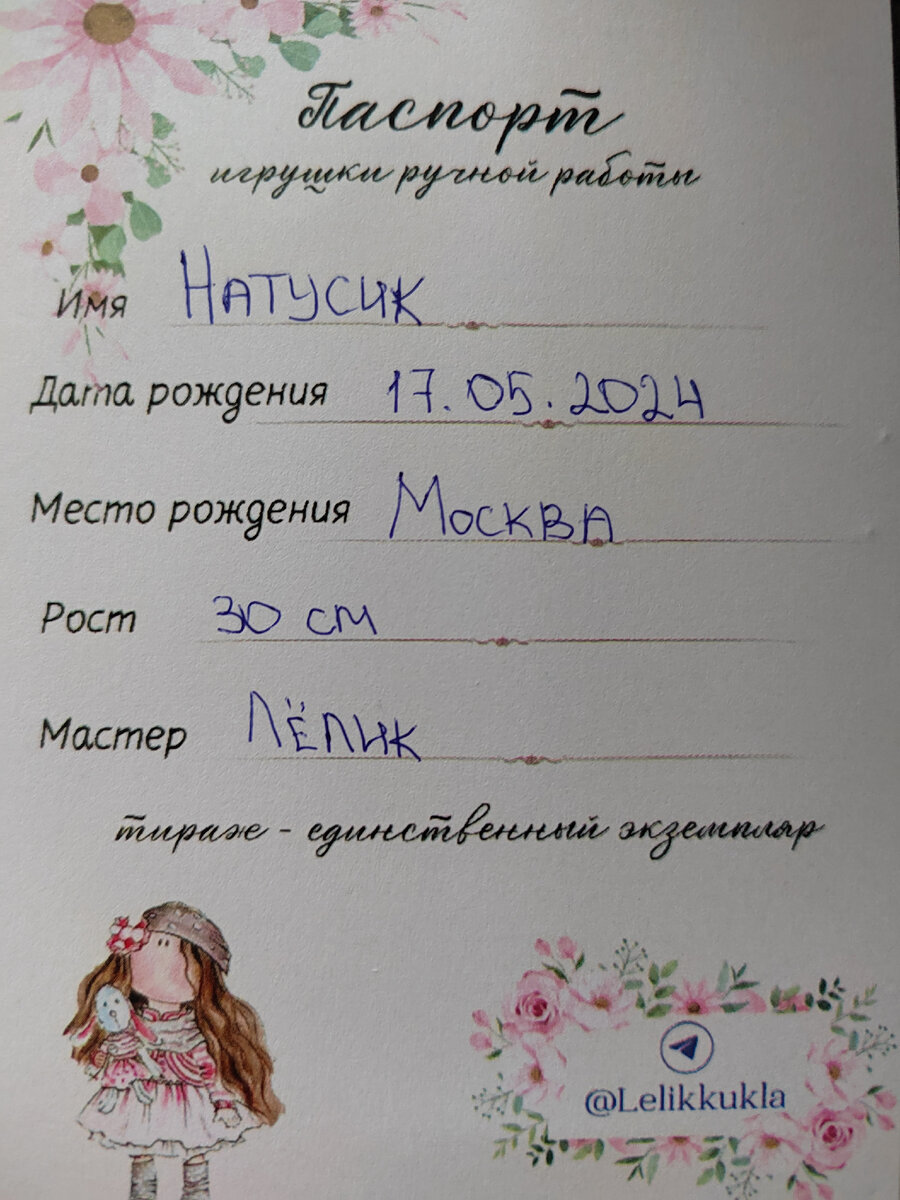 Паспорт
игрушки ручной работы
Имя Натусик
Дата рождения 17.05.2024
Место рождения Москва
Рост 30 см
Мастер Лёлик
тираж - единственный экземпляр
@Lelikkukla